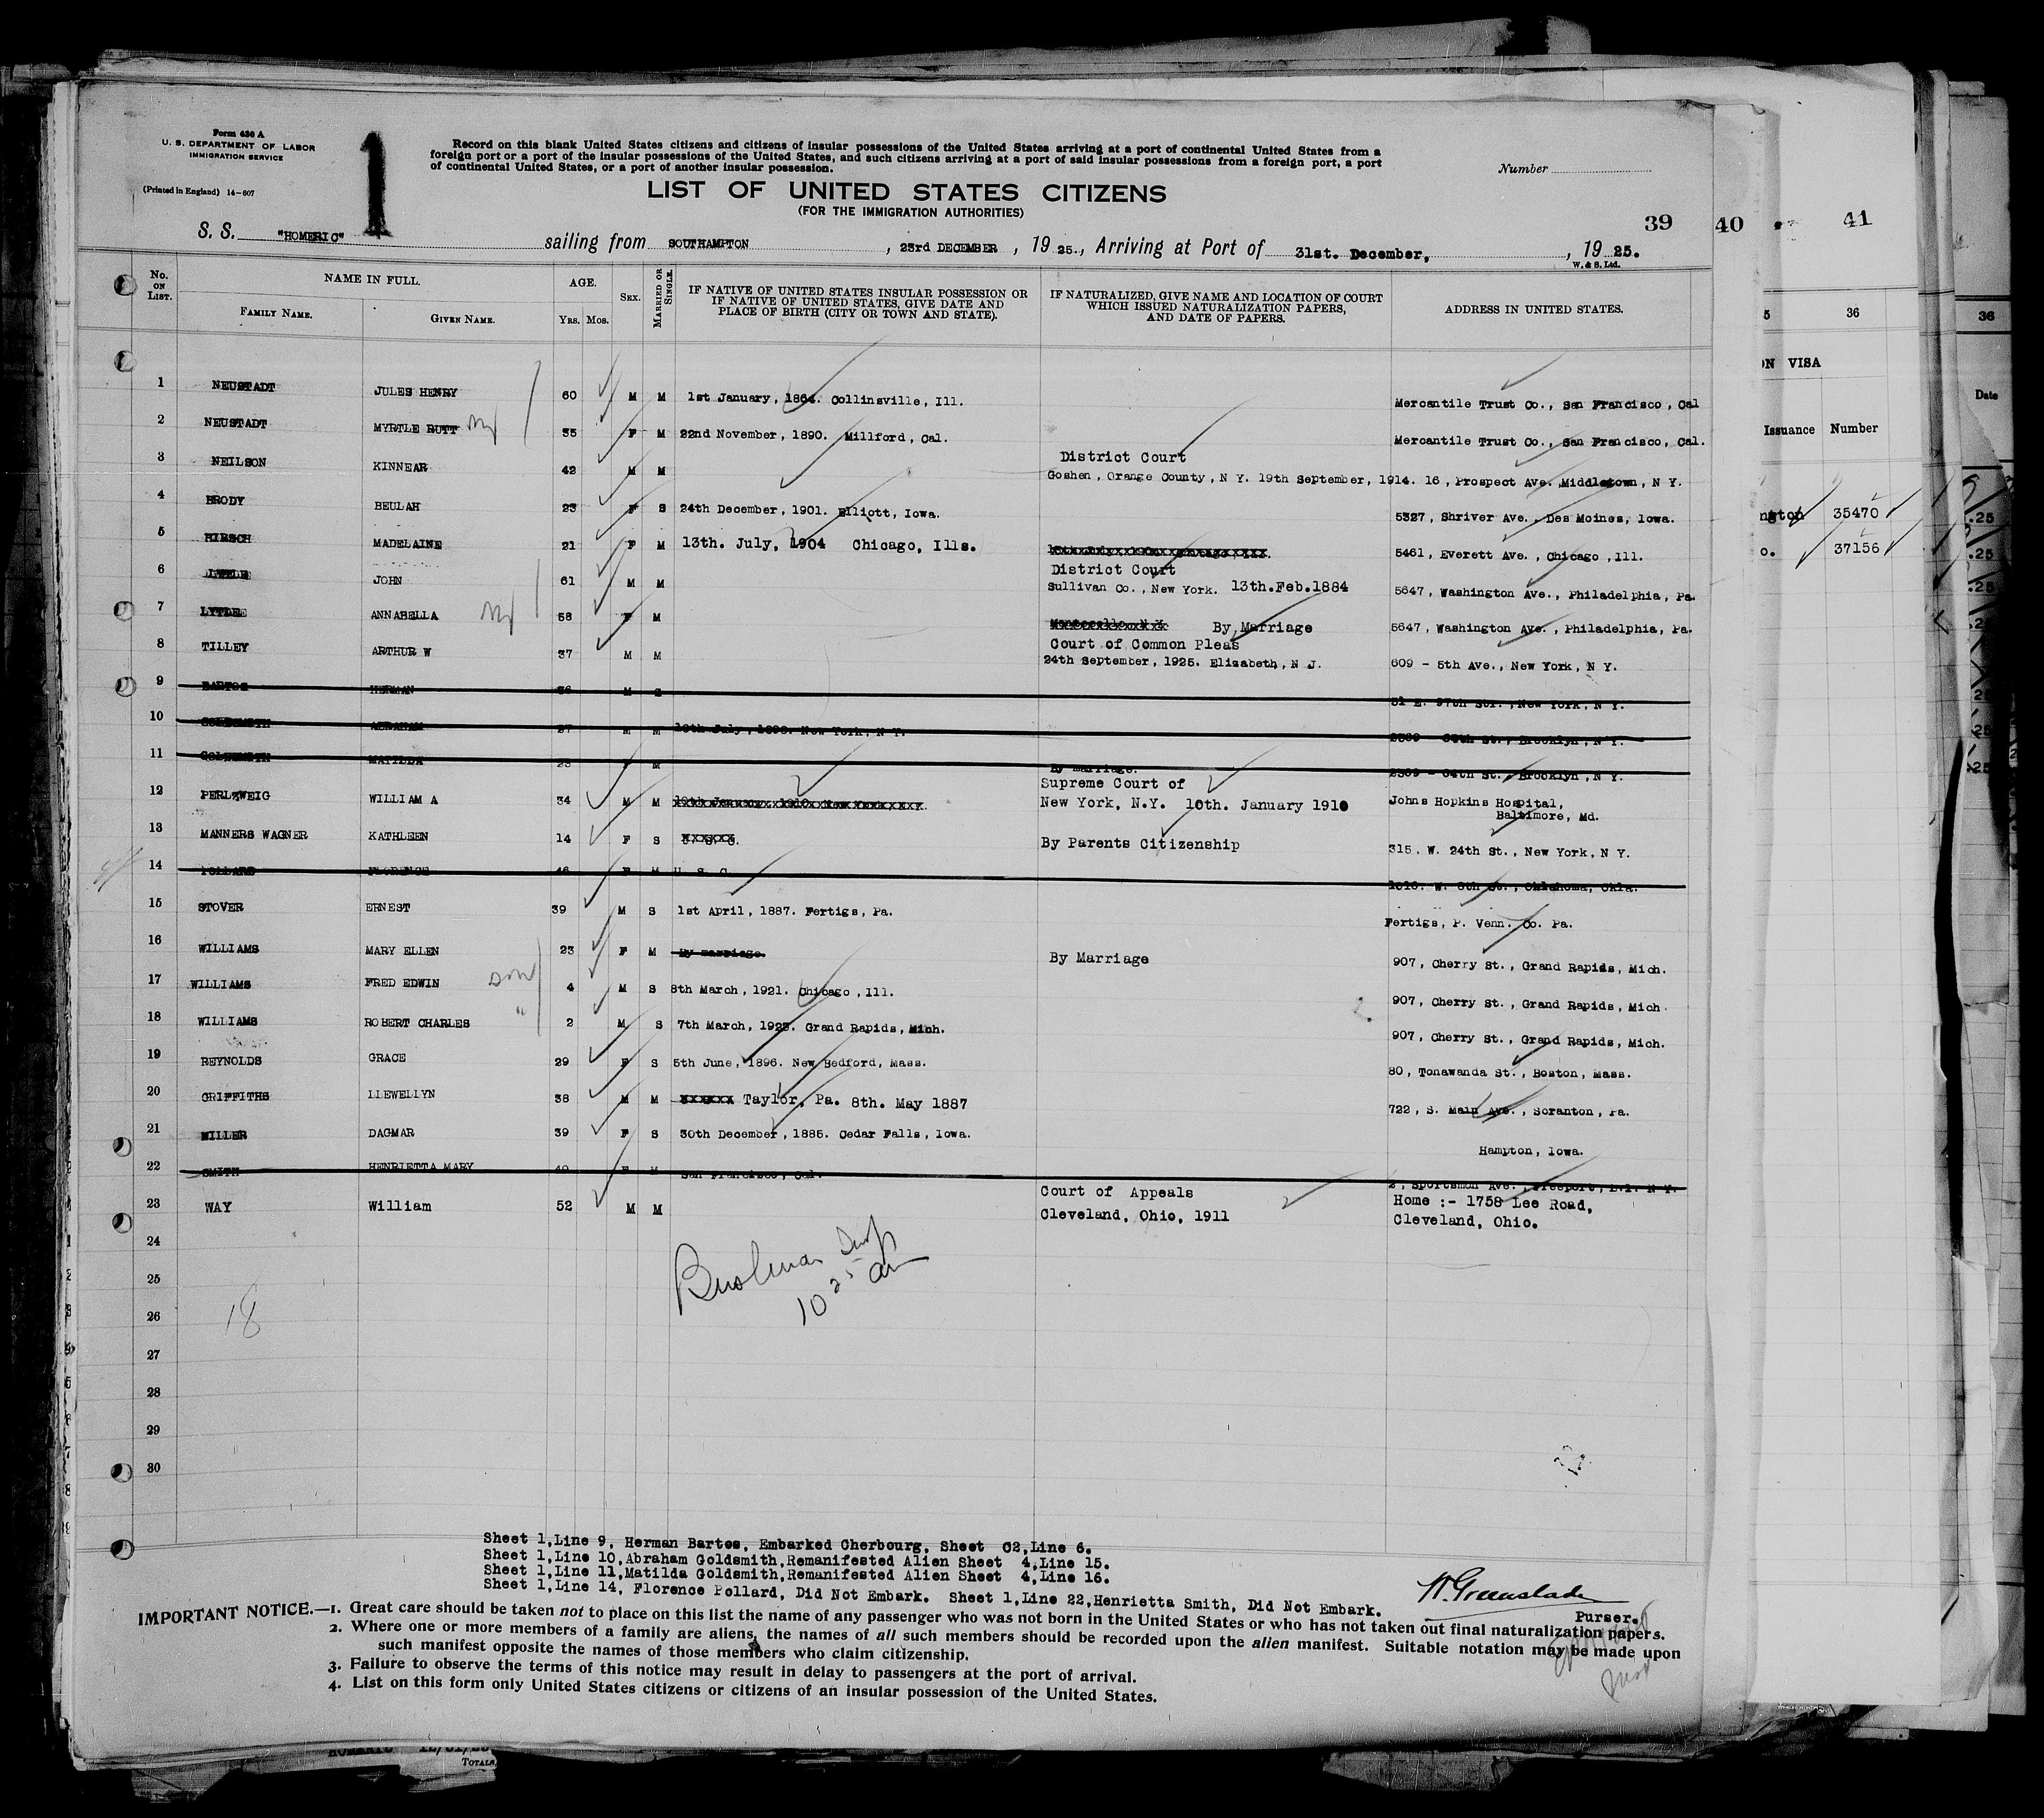 Form 630 A
U. S. DEPARTMENT OF LABOR
IMMIGRATION SERVICE
(Printed in England) 14-607
1
Record on this blank United States citizens and citizens of insular possessions of the United States arriving at a port of continental United States from a
foreign port or a port of the insular possessions of the United States, and such citizens arriving at a port of said insular possessions from a foreign port, a port
of continental United States, or a port of another insular possession.
Number
LIST OF UNITED STATES CITIZENS
(FOR THE IMMIGRATION AUTHORITIES)
39 40 41
S. S. "HOMERIC" sailing from SOUTHAMPTON, 23rd DECEMBER, 19 25., Arriving at Port of 31st. December, , 19 25.
W. & S. Ltd.
No. ON LIST. NAME IN FULL. FAMILY NAME. GIVEN NAME. AGE. YRS. MOS. SEX. MARRIED OR SINGLE. IF NATIVE OF UNITED STATES INSULAR POSSESSION OR IF NATIVE OF UNITED STATES, GIVE DATE AND PLACE OF BIRTH (CITY OR TOWN AND STATE). IF NATURALIZED, GIVE NAME AND LOCATION OF COURT WHICH ISSUED NATURALIZATION PAPERS, AND DATE OF PAPERS. ADDRESS IN UNITED STATES.
1 NEUSTADT JULES HENRY 60 M M 1st January, 1864. Collinsville, Ill. Mercantile Trust Co., San Francisco, Cal
2 NEUSTADT MYRTLE RUTT 35 F M 22nd November, 1890. Millford, Cal. Mercantile Trust Co., San Francisco, Cal.
3 NEILSON KINNEAR 42 M M District Court
Goshen, Orange County, N Y. 19th September, 1914. 16, Prospect Ave. Middletown, N Y.
4 BRODY BEULAH 23 F S 24th December, 1901. Elliott, Iowa. 5327, Shriver Ave., Des Moines, Iowa.
5 HIRSCH MADELAINE 21 F M 13th. July, 1904 Chicago, Ills. 5461, Everett Ave., Chicago, Ill.
6 JOHN 61 M M District Court
Sullivan Co., New York. 13th.Feb.1884 5647, Washington Ave., Philadelphia, Pa.
7 LYTLE ANNABELLA 58 F M By Marriage 5647, Washington Ave., Philadelphia, Pa.
8 TILLEY ARTHUR W 37 M M Court of Common Pleas
24th September, 1925. Elizabeth, N J. 609 - 5th Ave., New York, N Y.
9 BARTOS HERMAN 36 M S 97th Str., New York, N Y.
10 GOLDSMITH ABRAHAM 27 M M New York, N Y. Brooklyn, N Y.
11 GOLDSMITH MATILDA 23 F M By marriage. 2369 - 64th St., Brooklyn, N Y.
12 PERLZWEIG WILLIAM A 34 M M Supreme Court of
New York, N.Y. 10th. January 1910 Johns Hopkins Hospital,
Baltimore, Md.
13 MANNERS WAGNER KATHLEEN 14 F S By Parents Citizenship 315. W. 24th St., New York, N Y.
14 POLLARD FLORENCE 46 F M U S C Oklahoma, Okla.
15 STOVER ERNEST 39 M S 1st April, 1887. Fertigs, Pa. Fertigs, P. Venn. Co. Pa.
16 WILLIAMS MARY ELLEN 23 F M By marriage. By Marriage 907, Cherry St., Grand Rapids, Mich.
17 WILLIAMS FRED EDWIN son 4 M S 8th March, 1921. Chicago, Ill. 907, Cherry St., Grand Rapids, Mich.
18 WILLIAMS ROBERT CHARLES " 2 M S 7th March, 1923. Grand Rapids, Mich. 907, Cherry St., Grand Rapids, Mich.
19 REYNOLDS GRACE 29 F S 5th June, 1896. New Bedford, Mass. 80, Tonawanda St., Boston, Mass.
20 GRIFFITHS LLEWELLYN 38 M M Taylor, Pa. 8th. May 1887 722, S. Main Ave., Scranton, Pa.
21 MILLER DAGMAR 39 F S 30th December, 1885. Cedar Falls, Iowa. Hampton, Iowa.
22 SMITH HENRIETTA MARY 49 F M San Francisco, Cal. 2, Sportsmon Ave., Freeport, L.I. N Y.
23 WAY William 52 M M Court of Appeals
Cleveland, Ohio, 1911 Home :- 1758 Lee Road,
Cleveland, Ohio.
24
25
26
27
28
29
30
18
10 25 am
Sheet 1,Line 9, Herman Bartos, Embarked Cherbourg, Sheet C2,Line 6.
Sheet 1,Line 10,Abraham Goldsmith,Remanifested Alien Sheet 4,Line 15.
Sheet 1,Line 11,Matilda Goldsmith,Remanifested Alien Sheet 4,Line 16.
Sheet 1,Line 14, Florence Pollard, Did Not Embark. Sheet 1,Line 22,Henrietta Smith, Did Not Embark.
H. Greenslade
Purser.
IMPORTANT NOTICE.—1. Great care should be taken not to place on this list the name of any passenger who was not born in the United States or who has not taken out final naturalization papers.
2. Where one or more members of a family are aliens, the names of all such members should be recorded upon the alien manifest. Suitable notation may be made upon
such manifest opposite the names of those members who claim citizenship.
3. Failure to observe the terms of this notice may result in delay to passengers at the port of arrival.
4. List on this form only United States citizens or citizens of an insular possession of the United States.
36
VISA
Issuance Number
35470
37156
36
Date
TOTALS